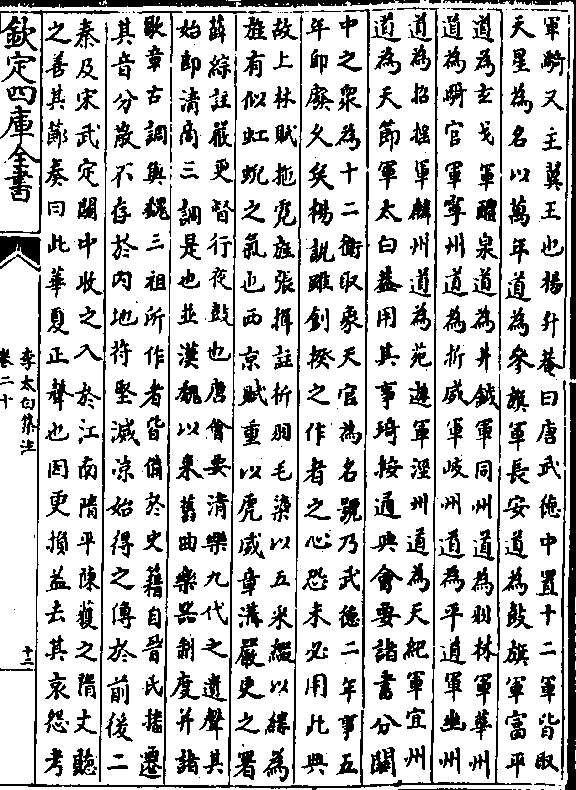 軍騎又主冀王也楊升菴曰唐武徳中置十二軍皆取
天星為名以萬年道為參旗軍長安道為鼓旗軍富平
道為玄戈軍醴泉道為井鉞軍同州道為羽林軍華州
道為騎官軍寧州道為折威軍岐州道為平道軍豳州
道為招揺軍麟州道為苑遊軍涇州道為天紀軍宜州
道為天節軍太白葢用其事琦按通典會要諸書分關
中之衆為十二衛取象天官為名號乃武徳二年事五
年即廢久矣楊説雖創揆之作者之心恐未必用此典
故上林賦拖霓旌張揖註析羽毛染以五采綴以縷為
旌有似虹蜺之氣也西京賦重以虎威章溝嚴更之署
薛綜註嚴更督行夜鼓也唐會要清樂九代之遺聲其
始即清商三調是也並漢魏以来舊曲樂器制度并諸
歌章古調與魏三祖所作者皆備於史籍自晉氏播遷
其音分散不存於内地苻堅滅凉始得之傳於前後二
秦及宋武定關中收之入於江南隋平陳獲之隋文聽
之善其節奏曰此華夏正聲也因更損益去其哀怨考
欽定四庫全書
李太白集注
卷二十
十二